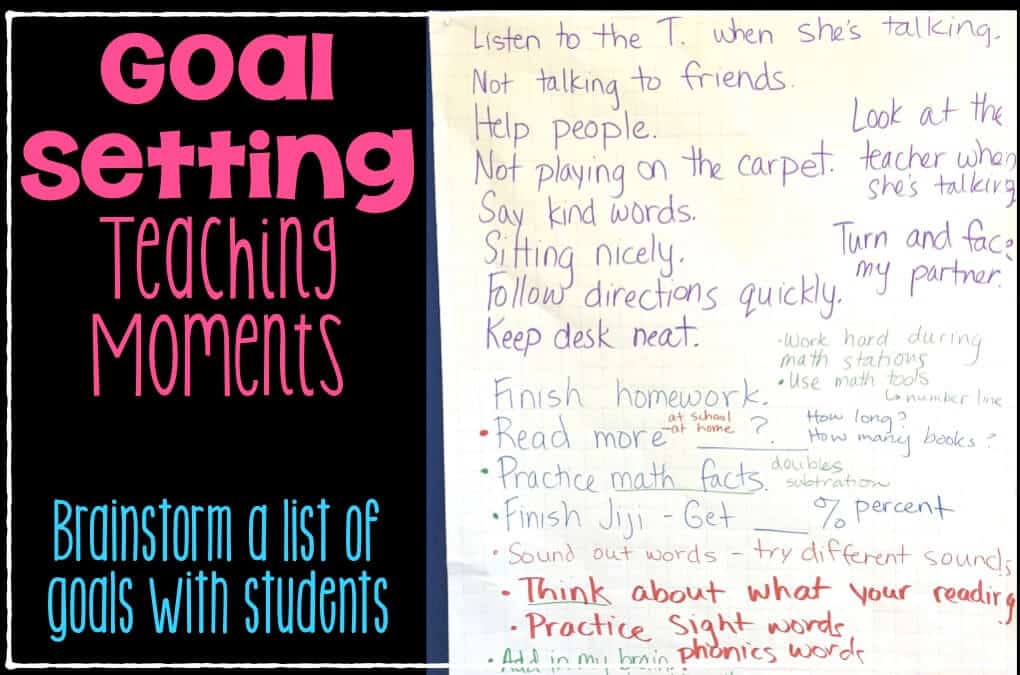 Goal
Setting
Teaching
Moments
Brainstorm a list of
goals with students
Listen to the T. when she's talking.
Not talking to friends.
Help people.
Not playing on the carpet.
Say kind words.
Sitting nicely.
Follow directions quickly.
Keep desk neat.
Look at the
teacher when
she's talking
Turn and face
my partner.
•Work hard during
math stations
•Use math tools
↳number line
Finish homework.
•Read more at school
-at home ____?
How long?
How many books?
•Practice math facts.
doubles
subtration
•Finish Jiji - Get ___ % percent
•Sound out words - try different sounds
•Think about what your reading
•Practice Sight words
phonics words
•Add in my brain